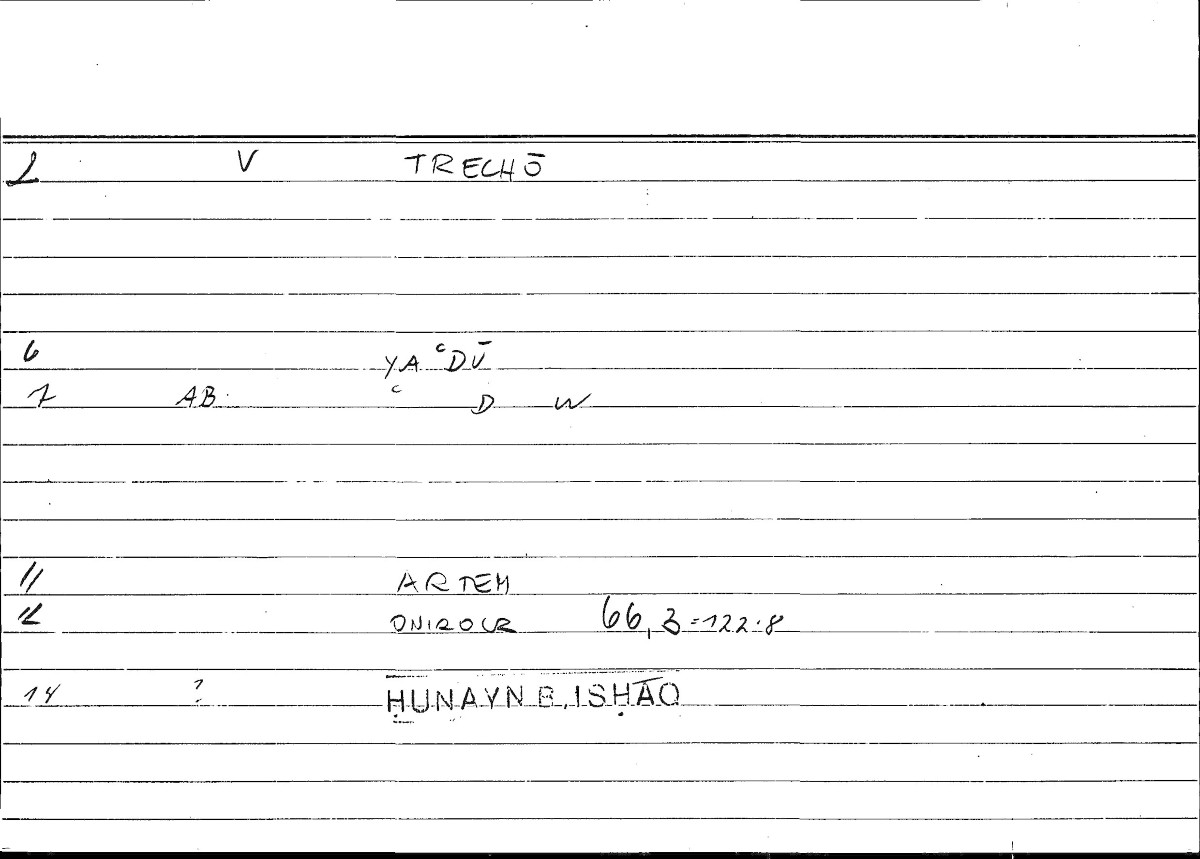 1 V TRECHŌ
6 YAʿDŪ
7 AB ʿ D W
11 ARTEM
12 ONIROCR 66,3=122.8
14 ? ḤUNAYN B. ISḤĀQ